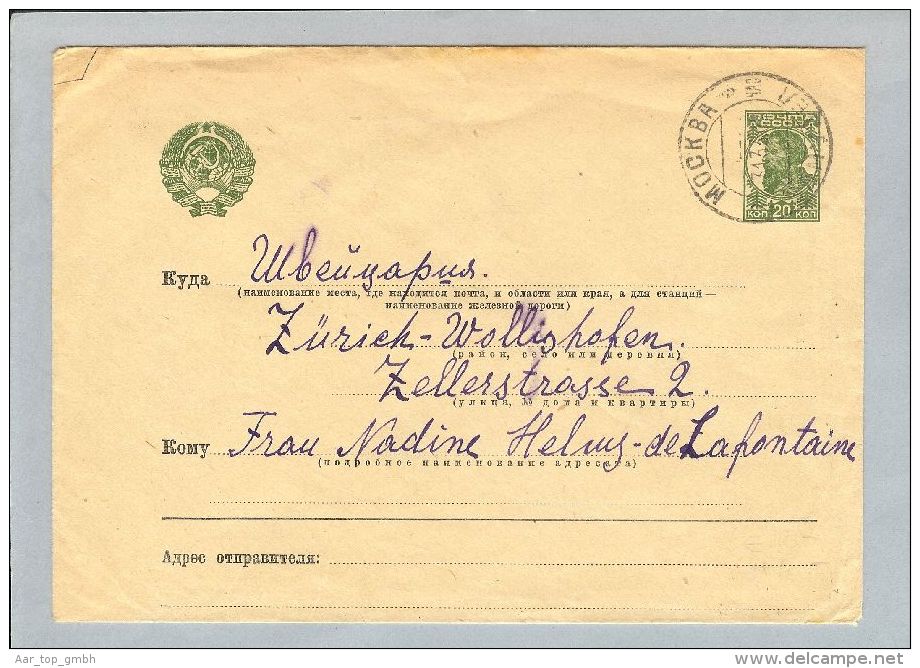 МОСКВА
ПОЧТА
СССР
КОП 20 КОП
Куда Швейцария.
(наименование места, где находится почта, и области или края, а для станций —
наименование железной дороги)
Zürich-Wollishofen.
(район, село или деревня)
Zellerstrasse 2.
(улица, № дома и квартиры)
Кому Frau Nadine Helmy-de Lafontaine
(подробное наименование адресата)
Адрес отправителя:
Aar_top_gmbh
delcampe.net